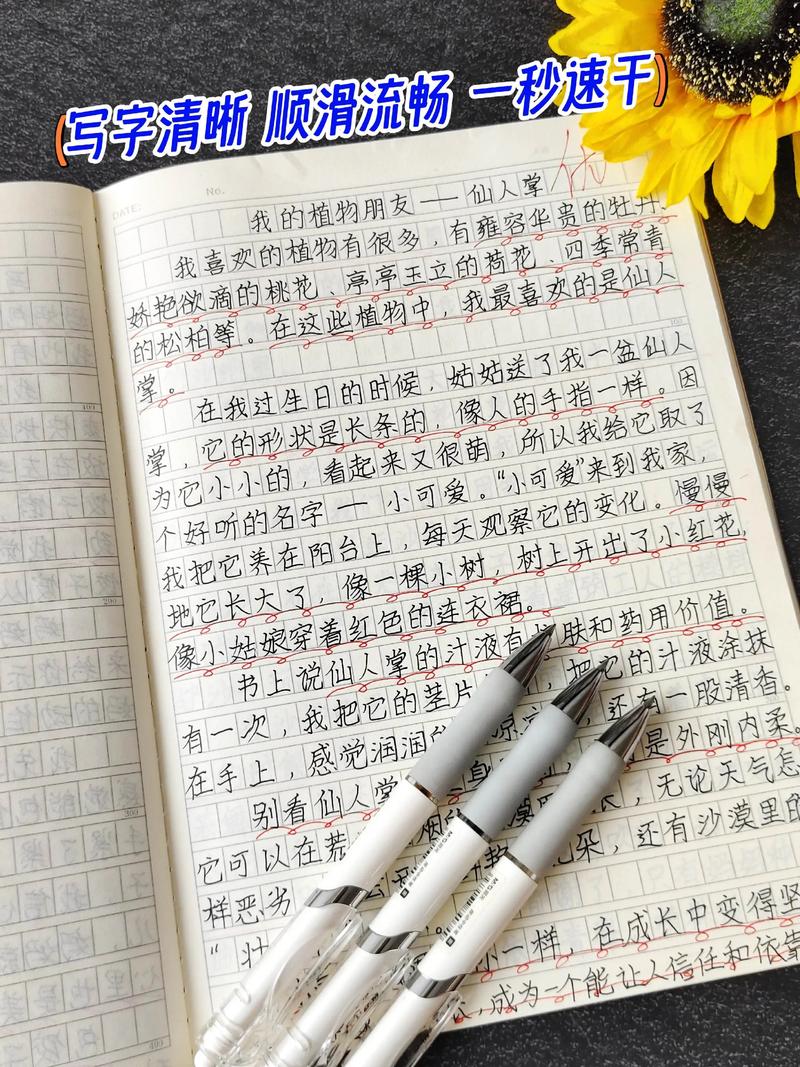 (写字清晰 顺滑流畅 一秒速干)
优
DATE:
No.
我的植物朋友——仙人掌
我喜欢的植物有很多，有雍容华贵的牡丹、
娇艳欲滴的桃花、亭亭玉立的荷花、四季常青
的松柏等。在这些植物中，我最喜欢的是仙人
掌。
100
在我过生日的时候，姑姑送了我一盆仙人
掌，它的形状是长条的，像人的手指一样。因
为它小小的，看起来又很萌，所以我给它取了
个好听的名字——小可爱。“小可爱”来到我家，
我把它养在阳台上，每天观察它的变化。慢慢
地它长大了，像一棵小树，树上开出了小红花，
像小姑娘穿着红色的连衣裙。
书上说仙人掌的汁液有 肤和药用价值。
有一次，我把它的茎片 ，把它的汁液涂抹
在手上，感觉润润的 ，还有一股清香。
别看仙人掌 是外刚内柔。
它可以在荒 长，无论天气怎
样恶劣 朵，还有沙漠里的
“ 小一样，在成长中变得坚
，成为一个能让人信任和依靠
M&G
200
300
400